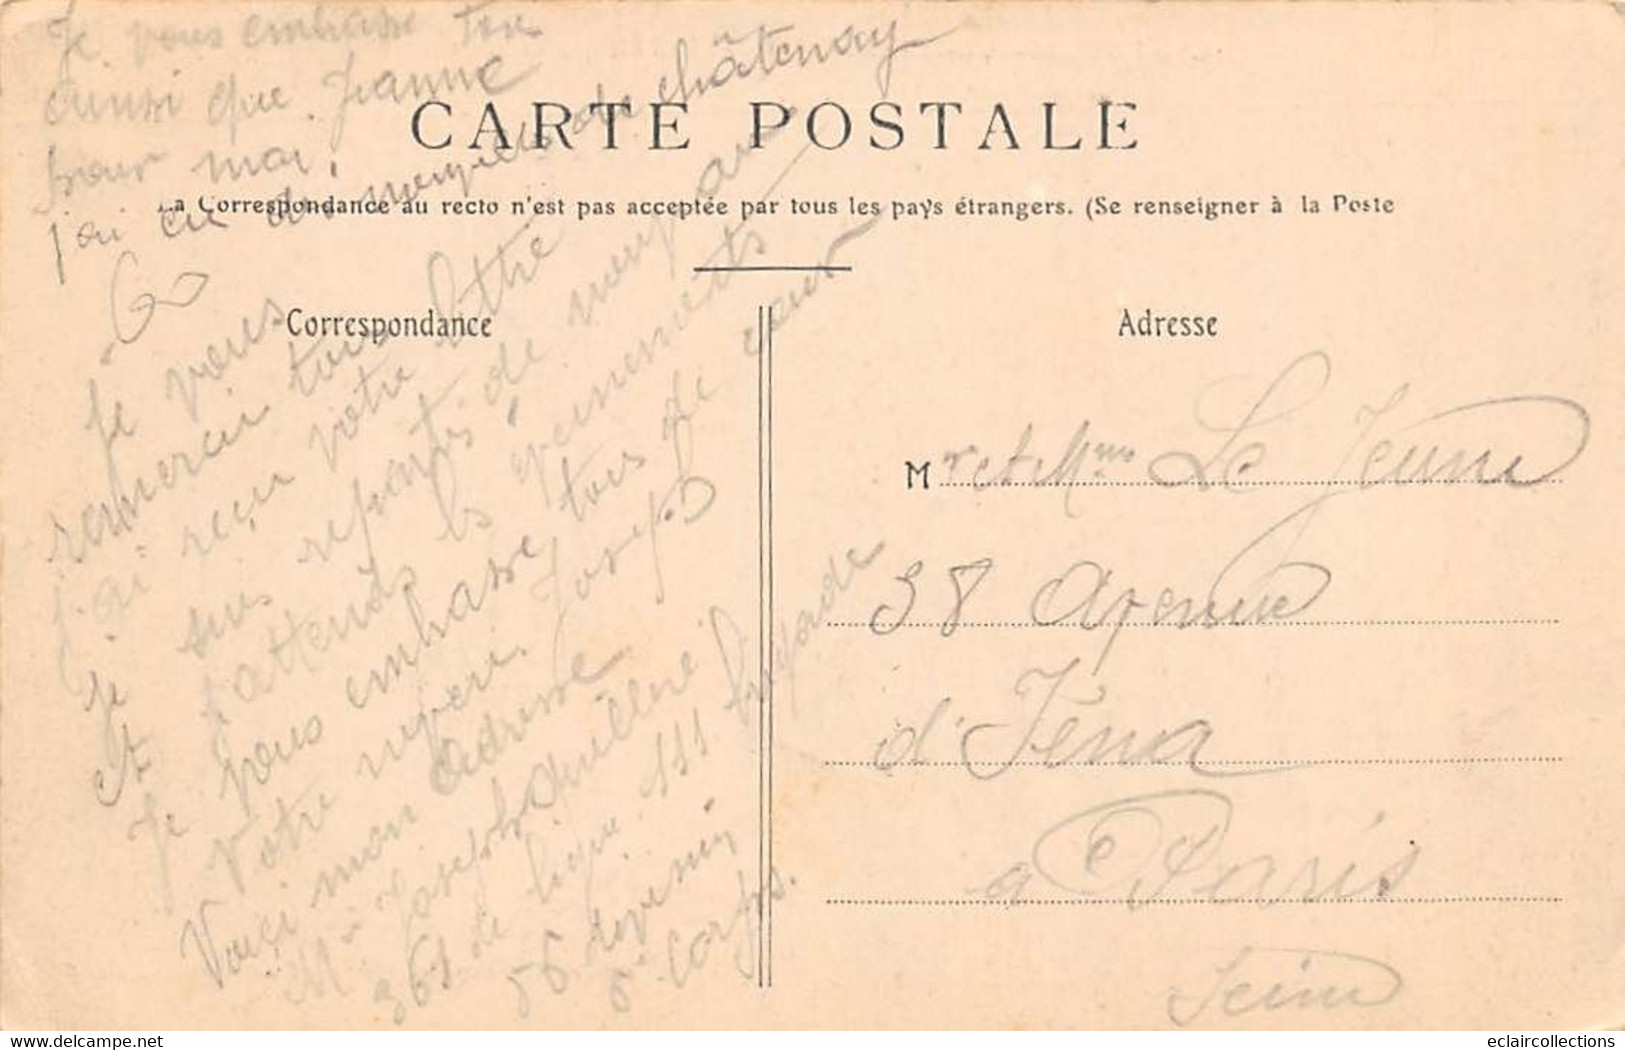 Je vous embrasse tou
ainsi que Jeanne
pour moi.
j'ai eu de de châtenay
CARTE POSTALE
La Correspondance au recto n'est pas acceptée par tous les pays étrangers. (Se renseigner à la Poste
Correspondance
Je vous
remercie tous
j'ai reçu votre lettre
Je suis
et j'attends les
Je vous embrasse tous de cœur
Votre Joseph
Voici mon adresse
Mr Joseph
361 de ligne 111 Brigade
56 division
5e Corps.
Adresse
Mr et Mme Le Jeune
38 Avenue
d'Iéna
a Paris
Seine
eclaircollections